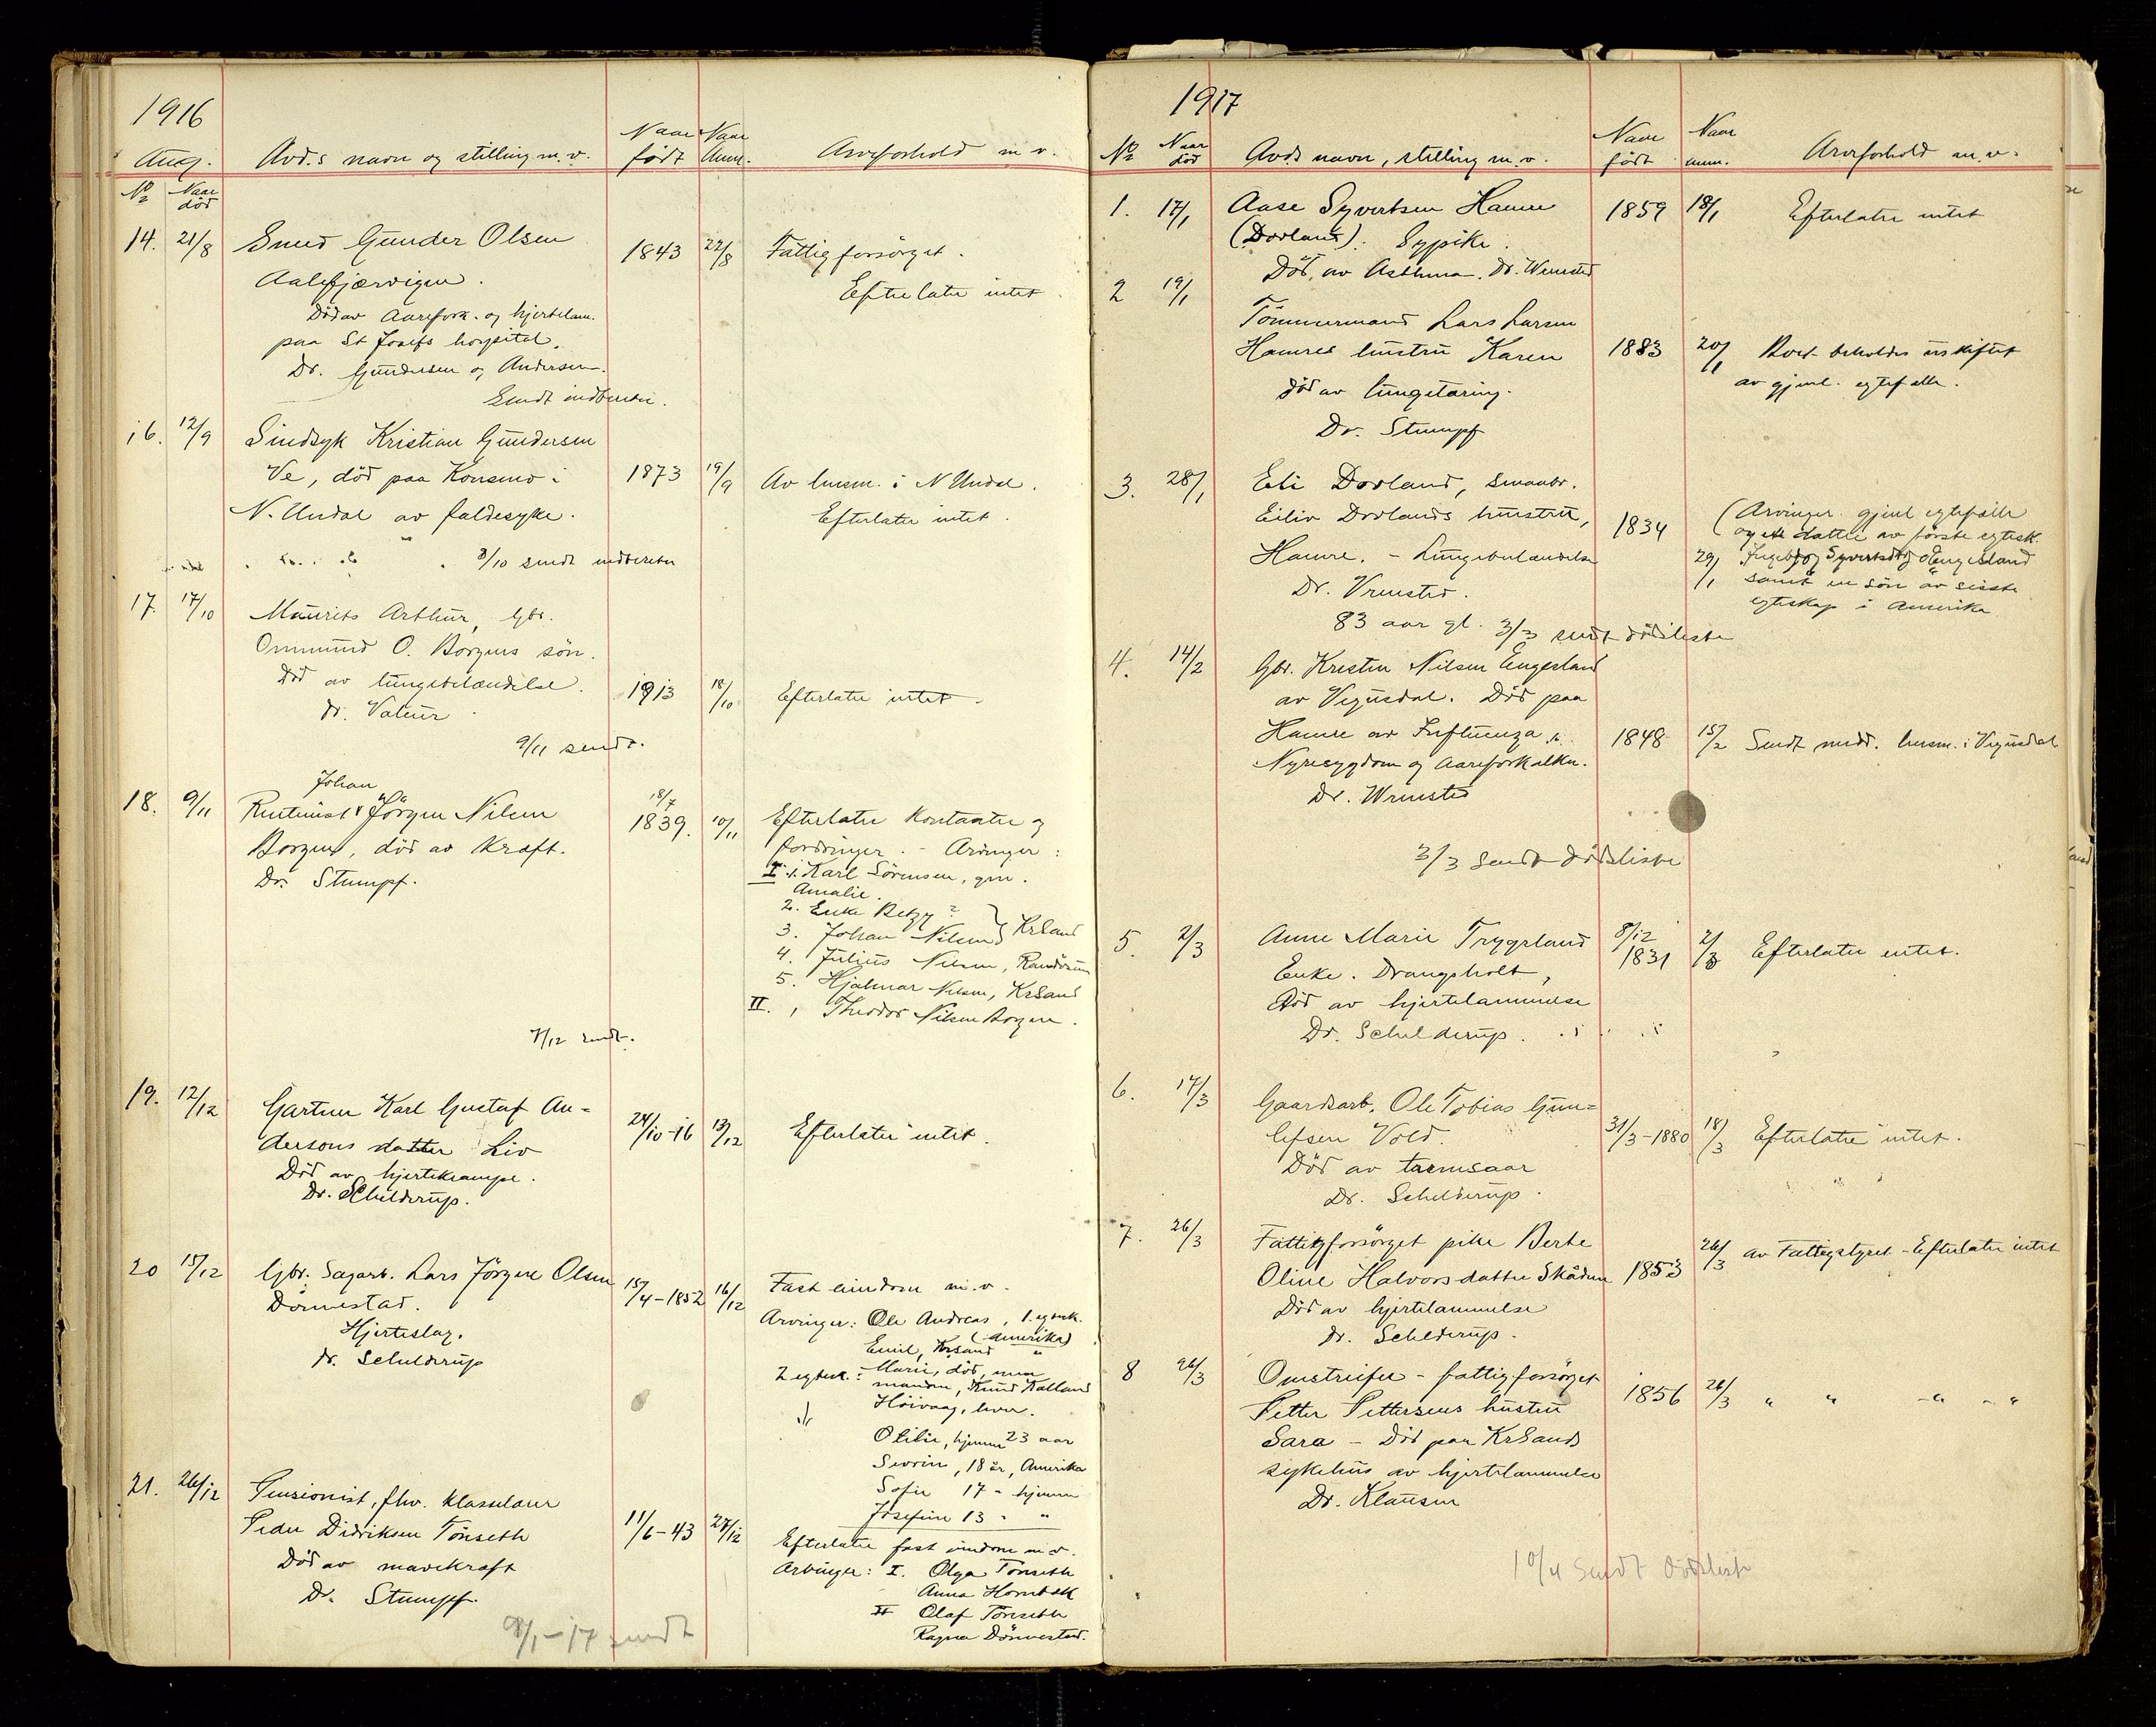 1916
Aug. Avd.s navn og stilling m. v. Naar født Naar Anm. Arveforhold m v.
No Naar död
14. 21/8 Smed Gunder Olsen 1843 22/8 Fattigforsörget.
Aalefjærvigen. Efterlater intet.
Död av Aarefork. og hjertelam.
paa St Josefs hospital.
Dr. Gundersen og Andersen.
Sendt indberetn.
16. 12/9 Sindsyk Kristian Gundersen
Ve, död paa Konsmo i 1873 19/9 Av lensm. i N Undal.
N. Undal av faldesyke. Efterlater intet.
3/10 sendt indberetn
17. 17/10 Maurits Arthur, Gbr.
Ommund O. Borgens sön.
Död av lungebetændelse. 1913 18/10 Efterlater intet.
dr. Valeur
9/11 sendt.
Johan
18. 9/11 Rentenist Jörgen Nilsen 18/7 1839. 10/11 Efterlater Kontanter og
Borgen, död av Kræft. fordringer. - Arvinger:
Dr. Stumpf. I 1. Karl Sörensen, gm.
Amalie.
2. Enke Betzy ? } KrSand
3. Johan Nilsen
4. Julius Nilsen, Randösund
5. Hjalmar Nilsen, KrSand
II. 1 Theodor Nilsen Borgen.
7/12 sendt.
19. 12/12 Gartner Karl Gustaf An=
dersons datter Liv 24/10-16 13/12 Efterlater intet.
Död av hjertekrampe.
Dr. Schelderup.
20 15/12 Gbr. Sagarb. Lars Jörgen Olsen 15/4-1852 16/12 Fast eiendom m.v.
Dönnestad. Arvinger: Ole Andreas, 1. egtesk.
Hjerteslag. (Amerika)
Dr. Schelderup Emil, KrSand "
2 egtesk.: Marie, död, men
manden, Knud Kalland
Höivaag, lever.
Otilie, hjemme 23 aar
Severin, 18 år, Amerika
Sofie 17 " hjemme
Josefine 13 " "
21. 26/12 Pensionist, fhv. klasselærer
Peder Didriksen Tönseth 11/6-43 27/12 Efterlater fast eiendom m.v.
Död av mavekræft Arvinger: I. Olga Tönseth
Dr. Stumpf. Anna Hornbæk
II Olaf Tönseth
Ragna Dönnestad.
9/1-17 sendt
1917
No Naar död Avds navn, stilling m. v. Naar född Naar anm. Arveforhold m. v.
1. 17/1 Aase Syvertsen Hamre 1859 18/1 Efterlater intet
(Dovland). Sypike.
Död av Asthma. Dr. Wrensted
2 19/1
Tömmermand Lars Larsen
Hamres hustru Karen 1883 20/1 Boet beholdes uskiftet
död av lungetæring. av gjenl. egtefælle.
Dr. Stumpf
3. 28/1 Eli Dovland, smaabr.
Eiliv Dovlands hustru, 1834 (Arvinger gjenl egtefælle
Hamre. - Lungebetændelse og ett datter av förste egtesk.
Dr. Vrensted. 29/1 Ingeborg Syvertsdtr Engesland
83 aar gl. samt en sön av sisste
egteskap i Amerika
3/3 sendt dödsliste
4. 14/2 Gbr. Kristen Nilsen Engesland
av Vegusdal. Död paa
Hamre av Influenza, 1848 15/2 Sendt medd. lensm. i Vegusdal
Nyresygdom og Aareforkalkn.
Dr. Wrensted
3/3 sendt dödsliste
5. 2/3 Anne Marie Trygsland 8/12 1831 2/3 Efterlater intet.
Enke. Drangsholt,
död av hjertelammelse
Dr. Schelderup.
6. 17/3 Gaardsarb. Ole Tobias Gun=
lefsen Vold. 31/3-1880 18/3 Efterlater intet.
Död av tarmsaar
Dr. Schelderup.
7. 26/3 Fattigforsörget pike Berte
Oline Halvorsdatter Skåden 1853 26/3 av Fattigstyret - Efterlater intet
Död av hjertelammelse
Dr. Schelderup.
8 26/3 Omstreifer - fattigforsörget
Petter Pettersens hustru 1856 26/3 " " -" - "
Sara - Död paa KrSands
sykehus av hjertelammelse
Dr. Klausen
10/4 Sendt dödsliste